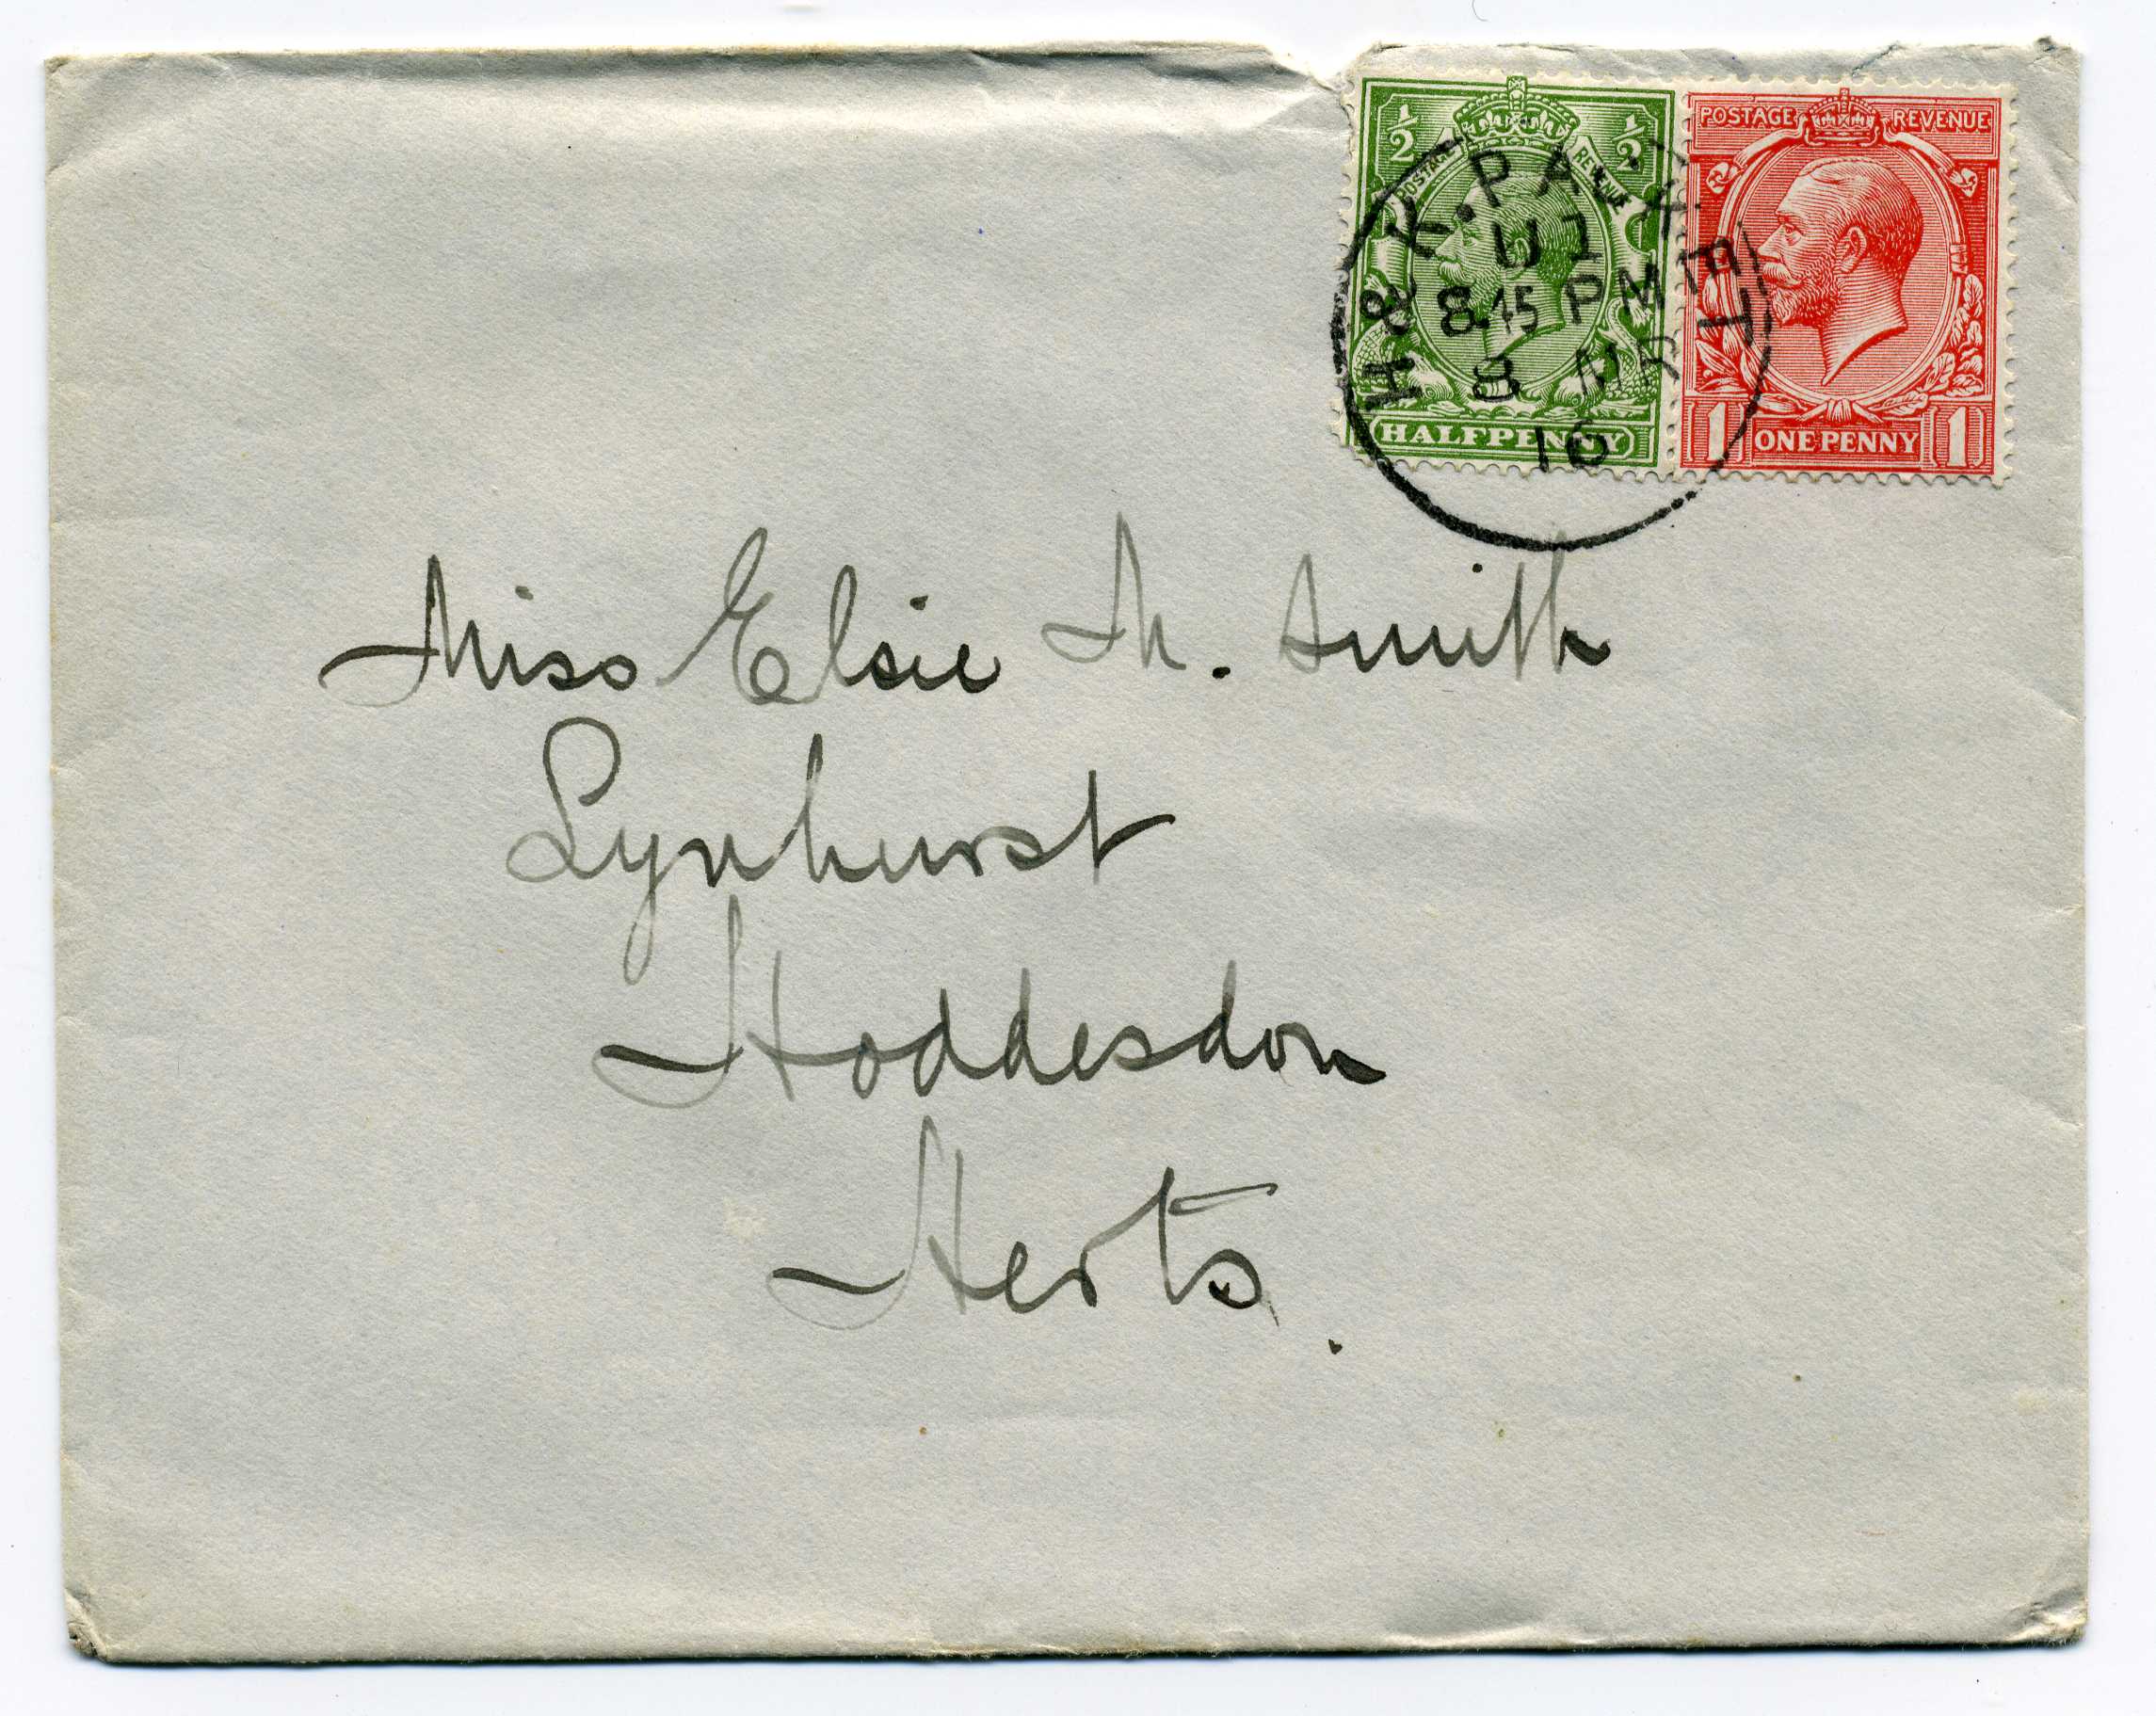 ½ ½
POSTAGE REVENUE
HALFPENNY
POSTAGE REVENUE
1 ONE PENNY 1
H & K. PACKET
U 1
8.45 PM
8 MR
16
Miss Elsie M. Smith
Lynhurst
Hoddesdon
Herts.